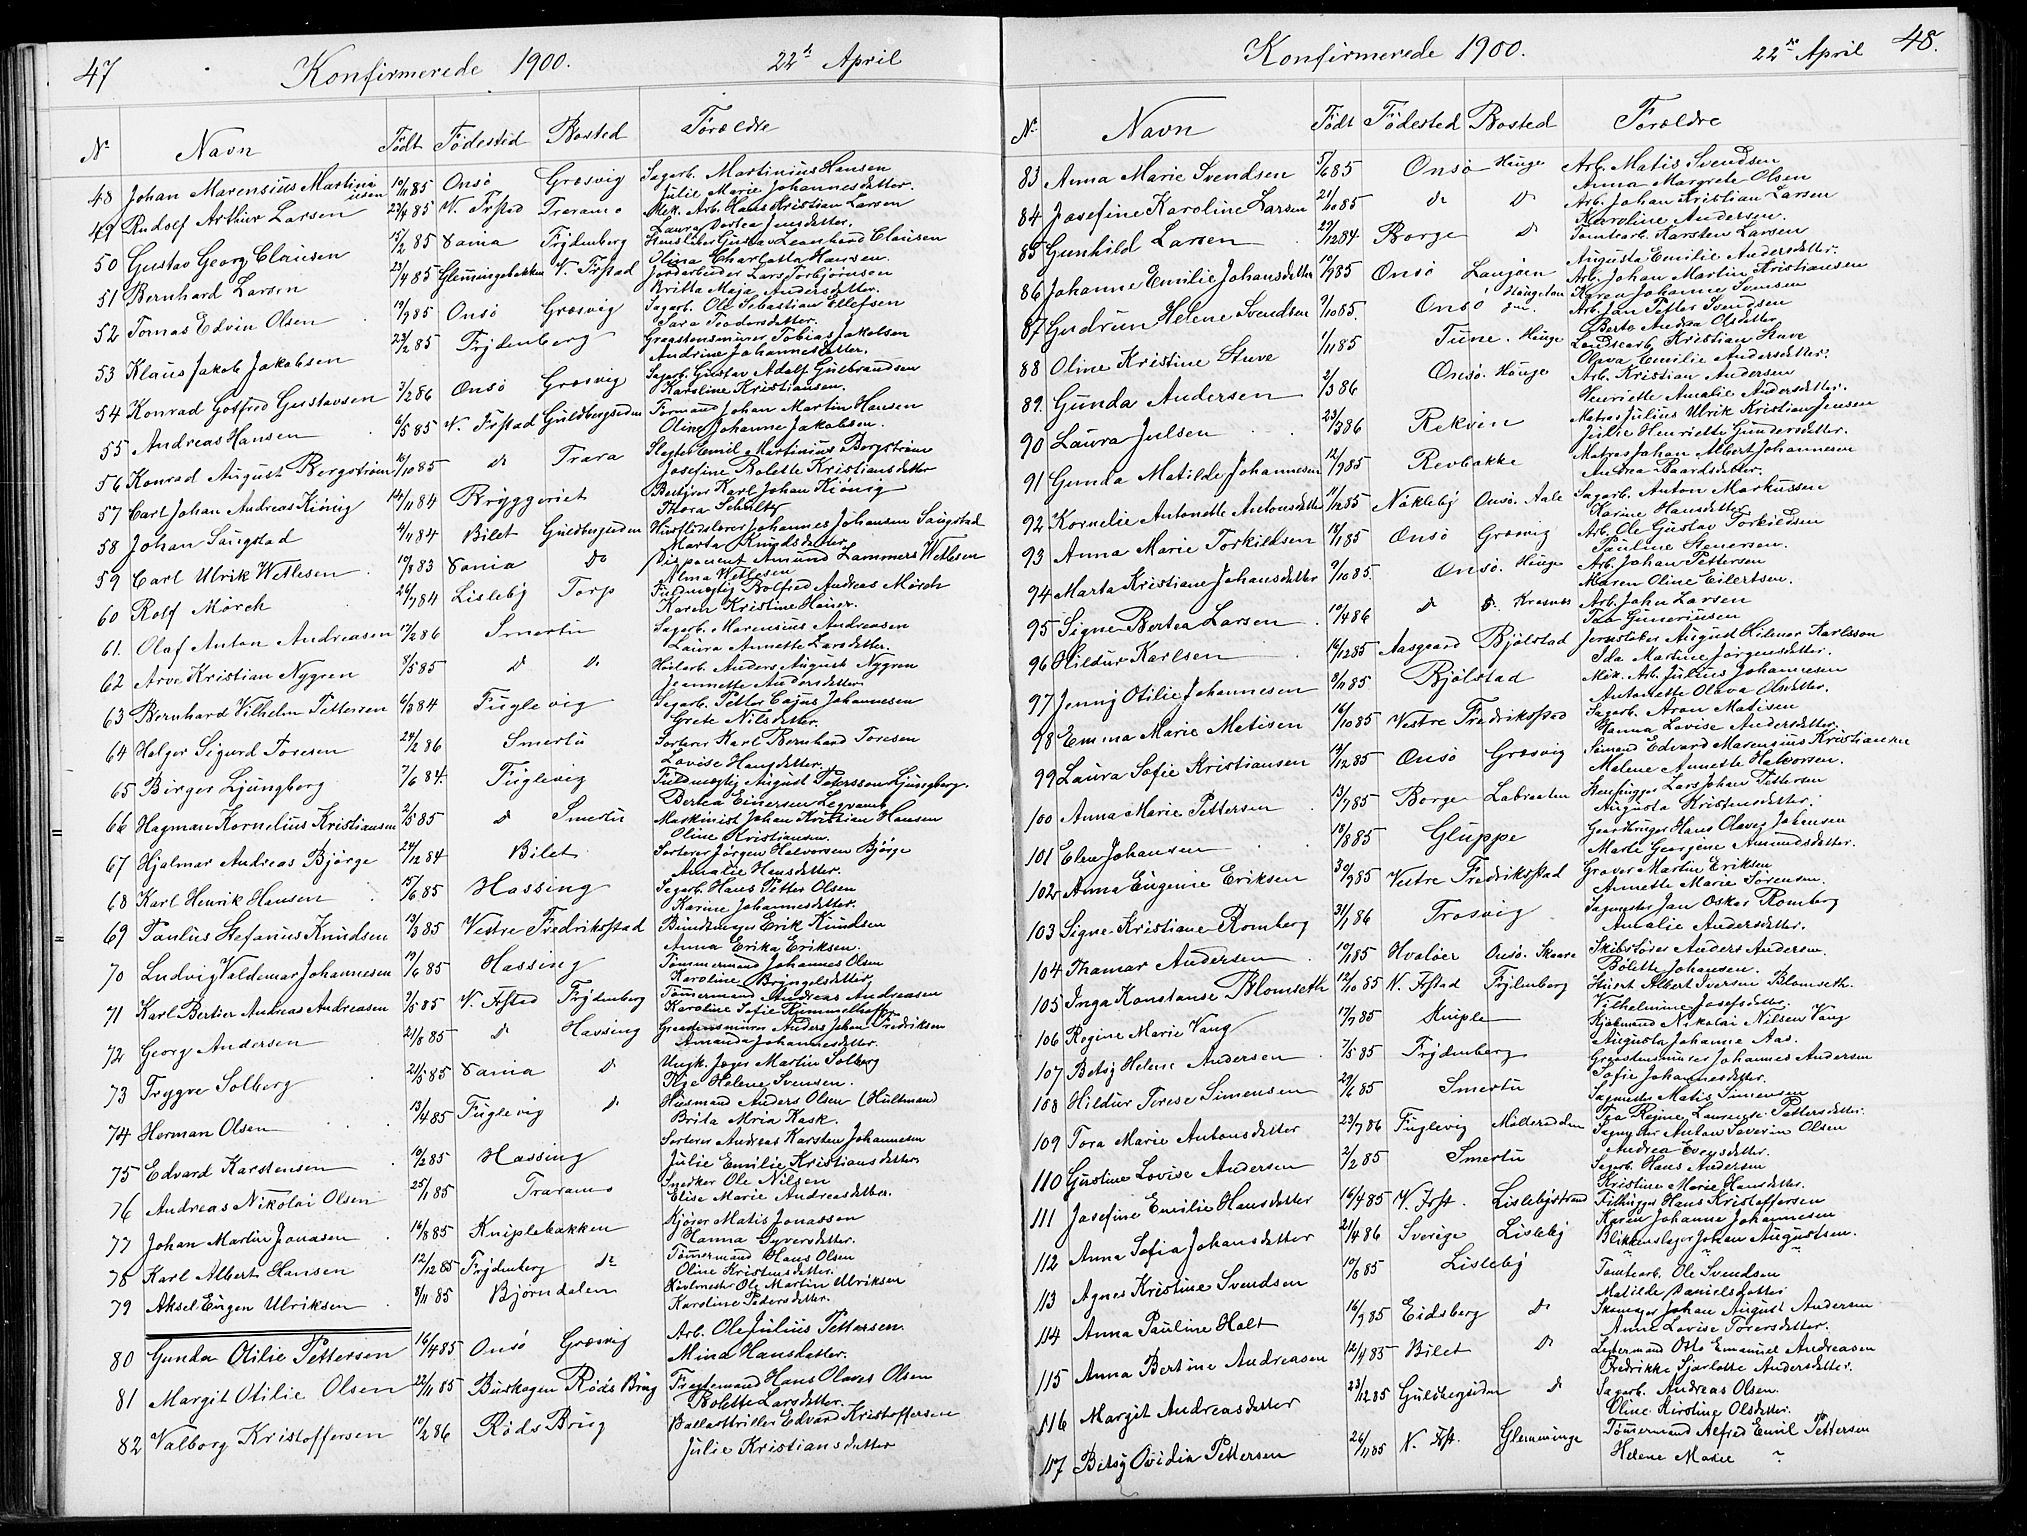 47 Konfirmerede 1900. 22de April
No Navn Født Fødested Bosted Forældre
48 Johan Marensius Martiniusen 10/11 85 Onsø Græsvig Sagarb. Martinius Hansen
Julie Marie Johannesdetter.
49 Rudolf Arthur Larsen 23/8 85 V. Frstad Traramo Mek. Arb. Hans Kristian Larsen
Laura Dortea Jensdetter.
50 Gustav Georg Clausen 15/2 85 Sama Frydenberg Gustav Leonhard Clausen
Olina Charlotta Hansen.
51 Bernhard Larsen 23/4 85 Glemmingebakken V. Frstad Jordarbeider Lars Torbjörnsen
Britta Maja Andersdetter.
52 Tomas Edvin Olsen 19/9 85 Onsö Græsvig Sagarb. Ole Sibastian Ellefsen
Sara Teodorsdetter.
53 Klaus Jakob Jakobsen 23/2 85 Frydenberg Graastensmurer Tobias Jakobsen
Andrine Johannesdetter.
54 Konrad Gotfred Gustavsen 3/2 86 Onsö Græsvig Sagarb. Gustav Adolf Gulbrandsen
Karoline Kristiansen.
55 Andreas Hansen 6/5 85 V. Frstad Guldbergsiden Formand Johan Martin Hansen
Oline Johanne Jakobsen.
56 Konrad August Bergström 16/10 85 do Trara Slagter Emil Martinius Bergström
Josefine Bolette Kristiansdetter
57 Carl Johan Andreas König 14/11 84 Bryggeriet Bestyrer Karl Johan König
Thora Schulter
58 Johan Saugstad 4/11 84 Bilet Guldbergsiden Husflidslærer Johannes Johansen Saugstad
Marta Knudsdetter
59 Carl Ulrik Wetlesen 19/8 83 Vania do Disponent Amund Lammers Wetlesen
Alma Wetlesen
60 Rolf Mörch 26/7 84 Lisleby Torp Fuldmægtig Bolfred Andreas Mörch
Karen Kristine Hauer.
61. Olaf Anton Andreasen 17/2 86 Smertu Sagarb. Marensius Andreasen
Laura Annette Larsdetter.
62 Arve Kristian Nygren 8/5 85 do do Höilarb. Anders August Nygren
Jeannette Andersdetter
63 Bernhard Vilhelm Pettersen 6/3 84 Fuglevig Sagarb. Petter Cajus Johannesen
Grete Nilsdetter.
64 Holger Sigurd Toresen 24/2 86 Smertu Sorterer Karl Bernhard Toresen
Lovise Hansdetter.
65 Birger Ljungberg 7/6 84. Fuglevig Fuldmægtig August Petersson Ljungberg.
Bertea Einersen
66 Hagman Kornelius Kristiansen 2/5 85 do Smertu Maskinist Johan Kristian Hansen
Oline Kristiansen.
67 Hjalmar Andreas Bjørge 24/12 84 Bilet Sorterer Jörgen Halvorsen Björge
Amalie Hansdetter.
68 Karl Henrik Hansen 15/6 85 Hassing Sagarb. Hans Petter Olsen
Karine Johannesdetter.
69 Paulus Stefanus Knudsen 13/3 85 Vestre Fredriksstad Erik Knudsen
Anna Erika Eriksen.
70 Ludvig Valdemar Johannesen 19/6 85 Hassing Tömmermand Johannes Olsen
Karoline Bryngelsdetter
71 Karl Bertin Andreas Andreasen 9/5 85 V. Frstad Frydenberg Tömmermand Andreas Andreasen
Karoline Sofie Rummelhoff.
72 Georg Andersen 21/8 85 do Hassing Graastensmurer Anders Johan Fredriksen
Amanda Johannesdetter.
73 Trygve Solberg 21/5 85 Vania do Ungk. Martin Solberg
Helene Svensen.
74 Herman Olsen 13/4 85 Fuglevig do Husmand Anders Olsen (Hultmand
Brita Maria Kask.
75 Edvard Karstensen 10/2 85 Hassing Sorterer Andreas Karsten Johannesen
Julie Emilie Kristiansdetter
76 Andreas Nikolai Olsen 25/1 85 Traramo Snedker Ole Nilsen
Elise Marie Andreasdetter.
77 Johan Martin Jonasen 16/8 85 Kniplebakken Kjörer Matis Jonassen
Hanna Syversdetter.
78 Karl Albert Hansen 12/12 85 Frydenberg do Tömmermand Hans Olsen
Oline Kristensdetter.
79 Aksel Eugen Ulriksen 8/11 85 Björndalen Ole Martin Ulriksen
Karoline Pedersdetter.
80 Gunda Otilie Pettersen 16/4 85 Onsö Græsvig Arb. Ole Julius Pettersen.
Mina Hansdetter.
81 Margit Otilie Olsen 22/11 85 Buskogen Röds Brug Hans Olaves Olsen
Bolette Larsdetter.
82 Valborg Kristoffersen 10/2 86 Röds Brug Edvard Kristoffersen
Julie Kristiansdetter
Konfirmerede 1900. 22de April 48.
No Navn Født Fødested Bosted Forældre
83 Anna Marie Svendsen 5/6 85 Onsö Hauge Arb. Matis Svendsen
Anna Margrete Olsen
84 Josefine Karoline Larsen 21/10 85 do do Arb. Johan Kristian Larsen
Karoline Andersen.
85 Gunhild Larsen 29/12 84 Borge do Tomtearb. Karsten Larsen
Augusta Emilie Andersdetter.
86 Johanne Emilie Johansdetter 10/9 85 Onsö Lanjöen Arb. Johan Martin Kristiansen
Karen Johanne Svensen
87 Gudrun Helene Svendsen 9/10 85. Onsö Arb. Jan Petter Svendsen
Berte Andrea Olsdetter
88 Oline Kristine Stuve 1/11 85 Tune. Hauge Landearb. Kristian Stuve
Olava Emilie Andersdetter.
89. Gunda Andersen 2/3 86 Onsö. Hauge Arb. Kristian Andersen
Henriette Amalie Andersdetter.
90 Laura Julsen 23/3 86 Rekvin Matros Julius Ulrik Kristian Jensen
Julie Henriette Gundersdetter.
91 Gunda Matilde Johannesen 12/9 85 Revbakke Matros Johan Albert Johannesen
Andrea
92 Kornelie Antonette Antonsdetter 11/12 85 Nökleby Onsö. Aale Sagarb. Anton Markussen
Karine Hansdetter
93 Anna Marie Torkildsen 14/1 85 Onsö Græsvig Arb. Ole Gustav Torkildsen
Pauline Stenersen.
94 Marta Kristiane Johansdetter 9/10 85. Onsö. Hauge Arb. Johan Pettersen
Maren Oline Eilertsen.
95 Signe Bertea Larsen 10/4 86 do do. Krosnes Arb. John Larsen
Tea Guneriusen
96 Hildur Karlsen 16/12 85 Aasgaard Bjölstad Jernstöber August Hilmar Karlsson
Ida Martine Jörgensdetter.
97 Jenny Otilie Johannesen 3/11 85 Bjölstad Mek. Arb. Julius Johannesen
Antonette Olava Olsdetter.
98 Emma Marie Matisen 16/10 85 Vestre Fredriksstad Sagarb. Aron Matisen
Hanna Lovise Andersdetter.
99 Laura Sofie Kristiansen 13/12 85 Onsö Græsvig Sömand Edvard Marensius Kristiansen
Malene Annette Halvorsen.
100 Anna Marie Pettersen 13/7 85 Borge Labraaten Stenhugger Lars Johan Pettersen
Augusta Kristensdetter.
101 Elen Johansen 18/8 85 Gluppe Gaardbruger Hans Olaves Johansen
Marte Georgine Amundsdetter.
102 Anna Eugenie Eriksen 30/9 85 Vestre Fredriksstad Graver Martin Eriksen
Annette Marie Sörensen.
103 Signe Kristiane Romberg 31/1 86 Trosvig Sagmester Jan Oskar Romberg
Amalie Andersdetter.
104 Thamar Andersen 10/1 85 Hvaløer Onsö. Skaare Skibsförer Anders Andersen.
Bölette Johansen.
105 Inga Konstanse Blomseth 12/10 85 V. Frstad Frydenberg Albert Iversen Blomseth.
Vilhelmine Josefsdetter.
106 Regine Marie Vang 17/7 85 Kniple Sjömand Nikolai Nilsen Vang
Augusta Johanne Aas.
107 Betsy Helene Andersen 7/5 85 Frydenberg Graastensmurer Johannes Andersen
Sofie Johannesdetter.
108 Hildur Terese Simensen 29/6 85 Smertu Sagmester Matis Simensen
Tea Regine Laurense Pettersdetter.
109 Tora Marie Antonsdetter 23/7 86 Fuglevig Anton Severin Olsen
Andrea Evensdetter.
110 Gustine Lovise Andersen 2/2 85 Smertu Sagarb. Hans Andersen
Kristine Marie Hansdetter.
111 Josefine Emilie Hansdetter 16/4 85 V. Frst. Lislebystrand Filhugger Hans Kristoffersen
Karen Johanne Johannesen
112 Anna Sofia Johansdetter 21/4 86 Sverige Lisleby Blikkenslager Johan Augustsen.
113 Agnes Kristine Svendsen 10/8 85 Lisleby Tomtearb. Ole Svendsen
Matilde Danielsdotter
114 Anna Pauline Holt 16/9 85 Eidsberg do Skomager Johan August Andersen
Anne Lovise Toresdetter.
115 Anna Bertine Andreasen 12/4 85 Bilet do Otto Emanuel Andreasen
Fredrikke Sjarlotte Andersdetter.
116 Margit Andreasdetter 23/12 85 Guldbergsiden do Sagarb. Andreas Olsen.
Oline Kirstine Olsdetter.
117 Betsy Ovidia Pettersen 26/11 85 V. Frst. Glemminge Tömmermand Alfred Emil Pettersen
Helene Marie ~